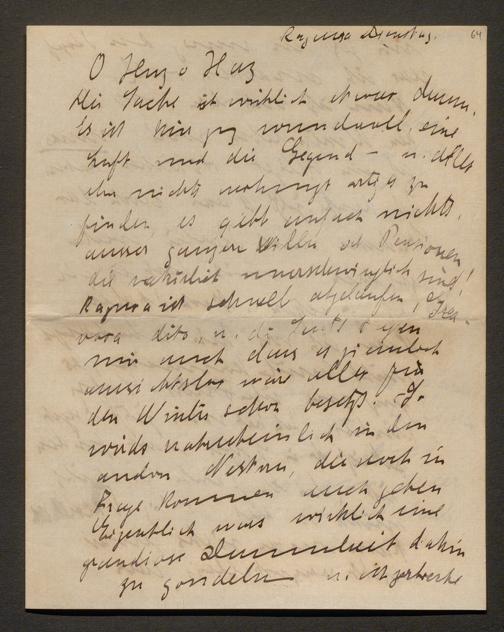 Ragusa Dienstag. 64
O Herz o Herz
die Sache ist wirklich etwas dumm.
Es ist hier ganz wundervoll, eine
Luft und die Gegend — u. alles
aber nichts zu
finden, es gibt einfach nichts,
ausser ganzen Villen od Pensionen
die natürlich unerschwinglich sind!
Ragusa ist schnell abgelaufen,
dito, u. die Leute sagen
mir auch dass es ziemlich
aussichtslos wäre alles für
den Winter schon besetzt. So
wirds wahrscheinlich in den
andern Nestern, die noch in
Frage kommen auch gehen
Eigentlich wars wirklich eine
grandiose Dummheit dahin
zu gondeln u. ich